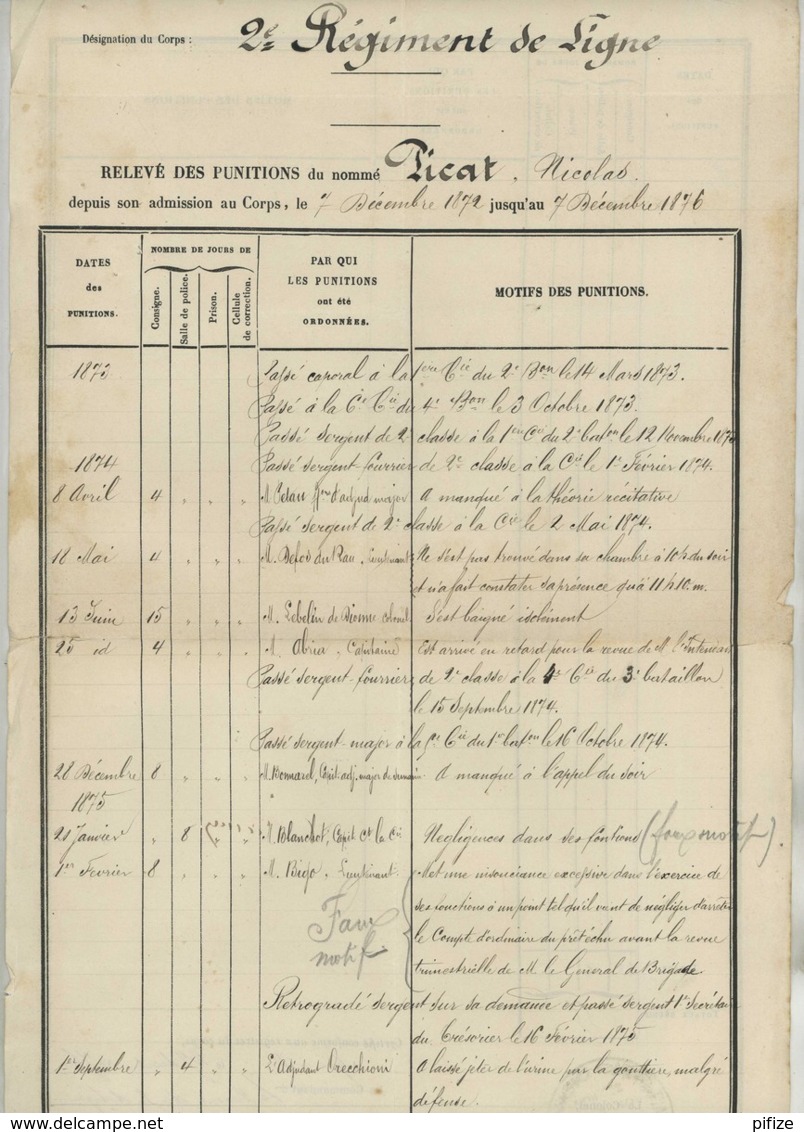 Désignation du Corps : 2e Régiment de Ligne
RELEVÉ DES PUNITIONS du nommé Picat, Nicolas.
depuis son admission au Corps, le 7 Décembre 1872 jusqu'au 7 Décembre 1876
DATES des PUNITIONS.
NOMBRE DE JOURS DE
Consigne.
Salle de police.
Prison.
Cellule de correction.
PAR QUI LES PUNITIONS ont été ORDONNÉES.
MOTIFS DES PUNITIONS.
1873 Passé caporal à la 1ere Cie du 2e Bon le 14 Mars 1873.
Passé à la 6e Cie du 4e Bon le 3 Octobre 1873.
Passé Sergent de 2e classe à la 1ere Cie du 2e baton le 12 Novembre 1873
1874 Passé Sergent-fourrier de 2e classe à la Cie le 1er Février 1874.
8 Avril 4 " " " M. d'adjud major A manqué à la théorie récitative
Passé Sergent de 2e classe à la Cie le 2 Mai 1874.
18 Mai 4 " " " M. Befos du Rau, Lieutenant Ne s'est pas trouvé dans sa chambre à 10h du soir
et n'a fait constater sa présence qu'à 11h 10m.
13 Juin 15 " " " M. Lebelin de Dionne Colonel S'est baigné isolément
25 id 4 " " " M. Abria, Capitaine Est arrivé en retard pour la revue de M. l'Intendant
Passé Sergent-fourrier de 2e classe à la 4e Cie du 3e bataillon
le 15 Septembre 1874.
Passé Sergent-major à la 2e Cie du 1er baton le 16 Octobre 1874.
28 Décembre 8 " " " M. Bonnarel, Capit. adj. major de semaine A manqué à l'appel du soir
1875
21 Janvier " 8 " " M. Blanchot, Capit Ct la Cie Negligences dans ses fontions (faux motif).
1er Fevrier 8 " " " M. Bigo, Lieutenant. Met une insouciance excessive dans l'exercice de
ses fonctions à un point tel qu'il vient de négliger d'arrêter
Faux motif. le Compte d'ordinaire du prêt échu avant la revue
trimestrielle de M. le Général de Brigade
Rétrogradé sergent sur sa demande et passé sergent 1er Secrétaire
du Trésorier le 16 Février 1875
1er Septembre " 4 " " L'Adjudant Orecchioni A laissé jeter de l'urine par la gouttière, malgré
défense.
pifize